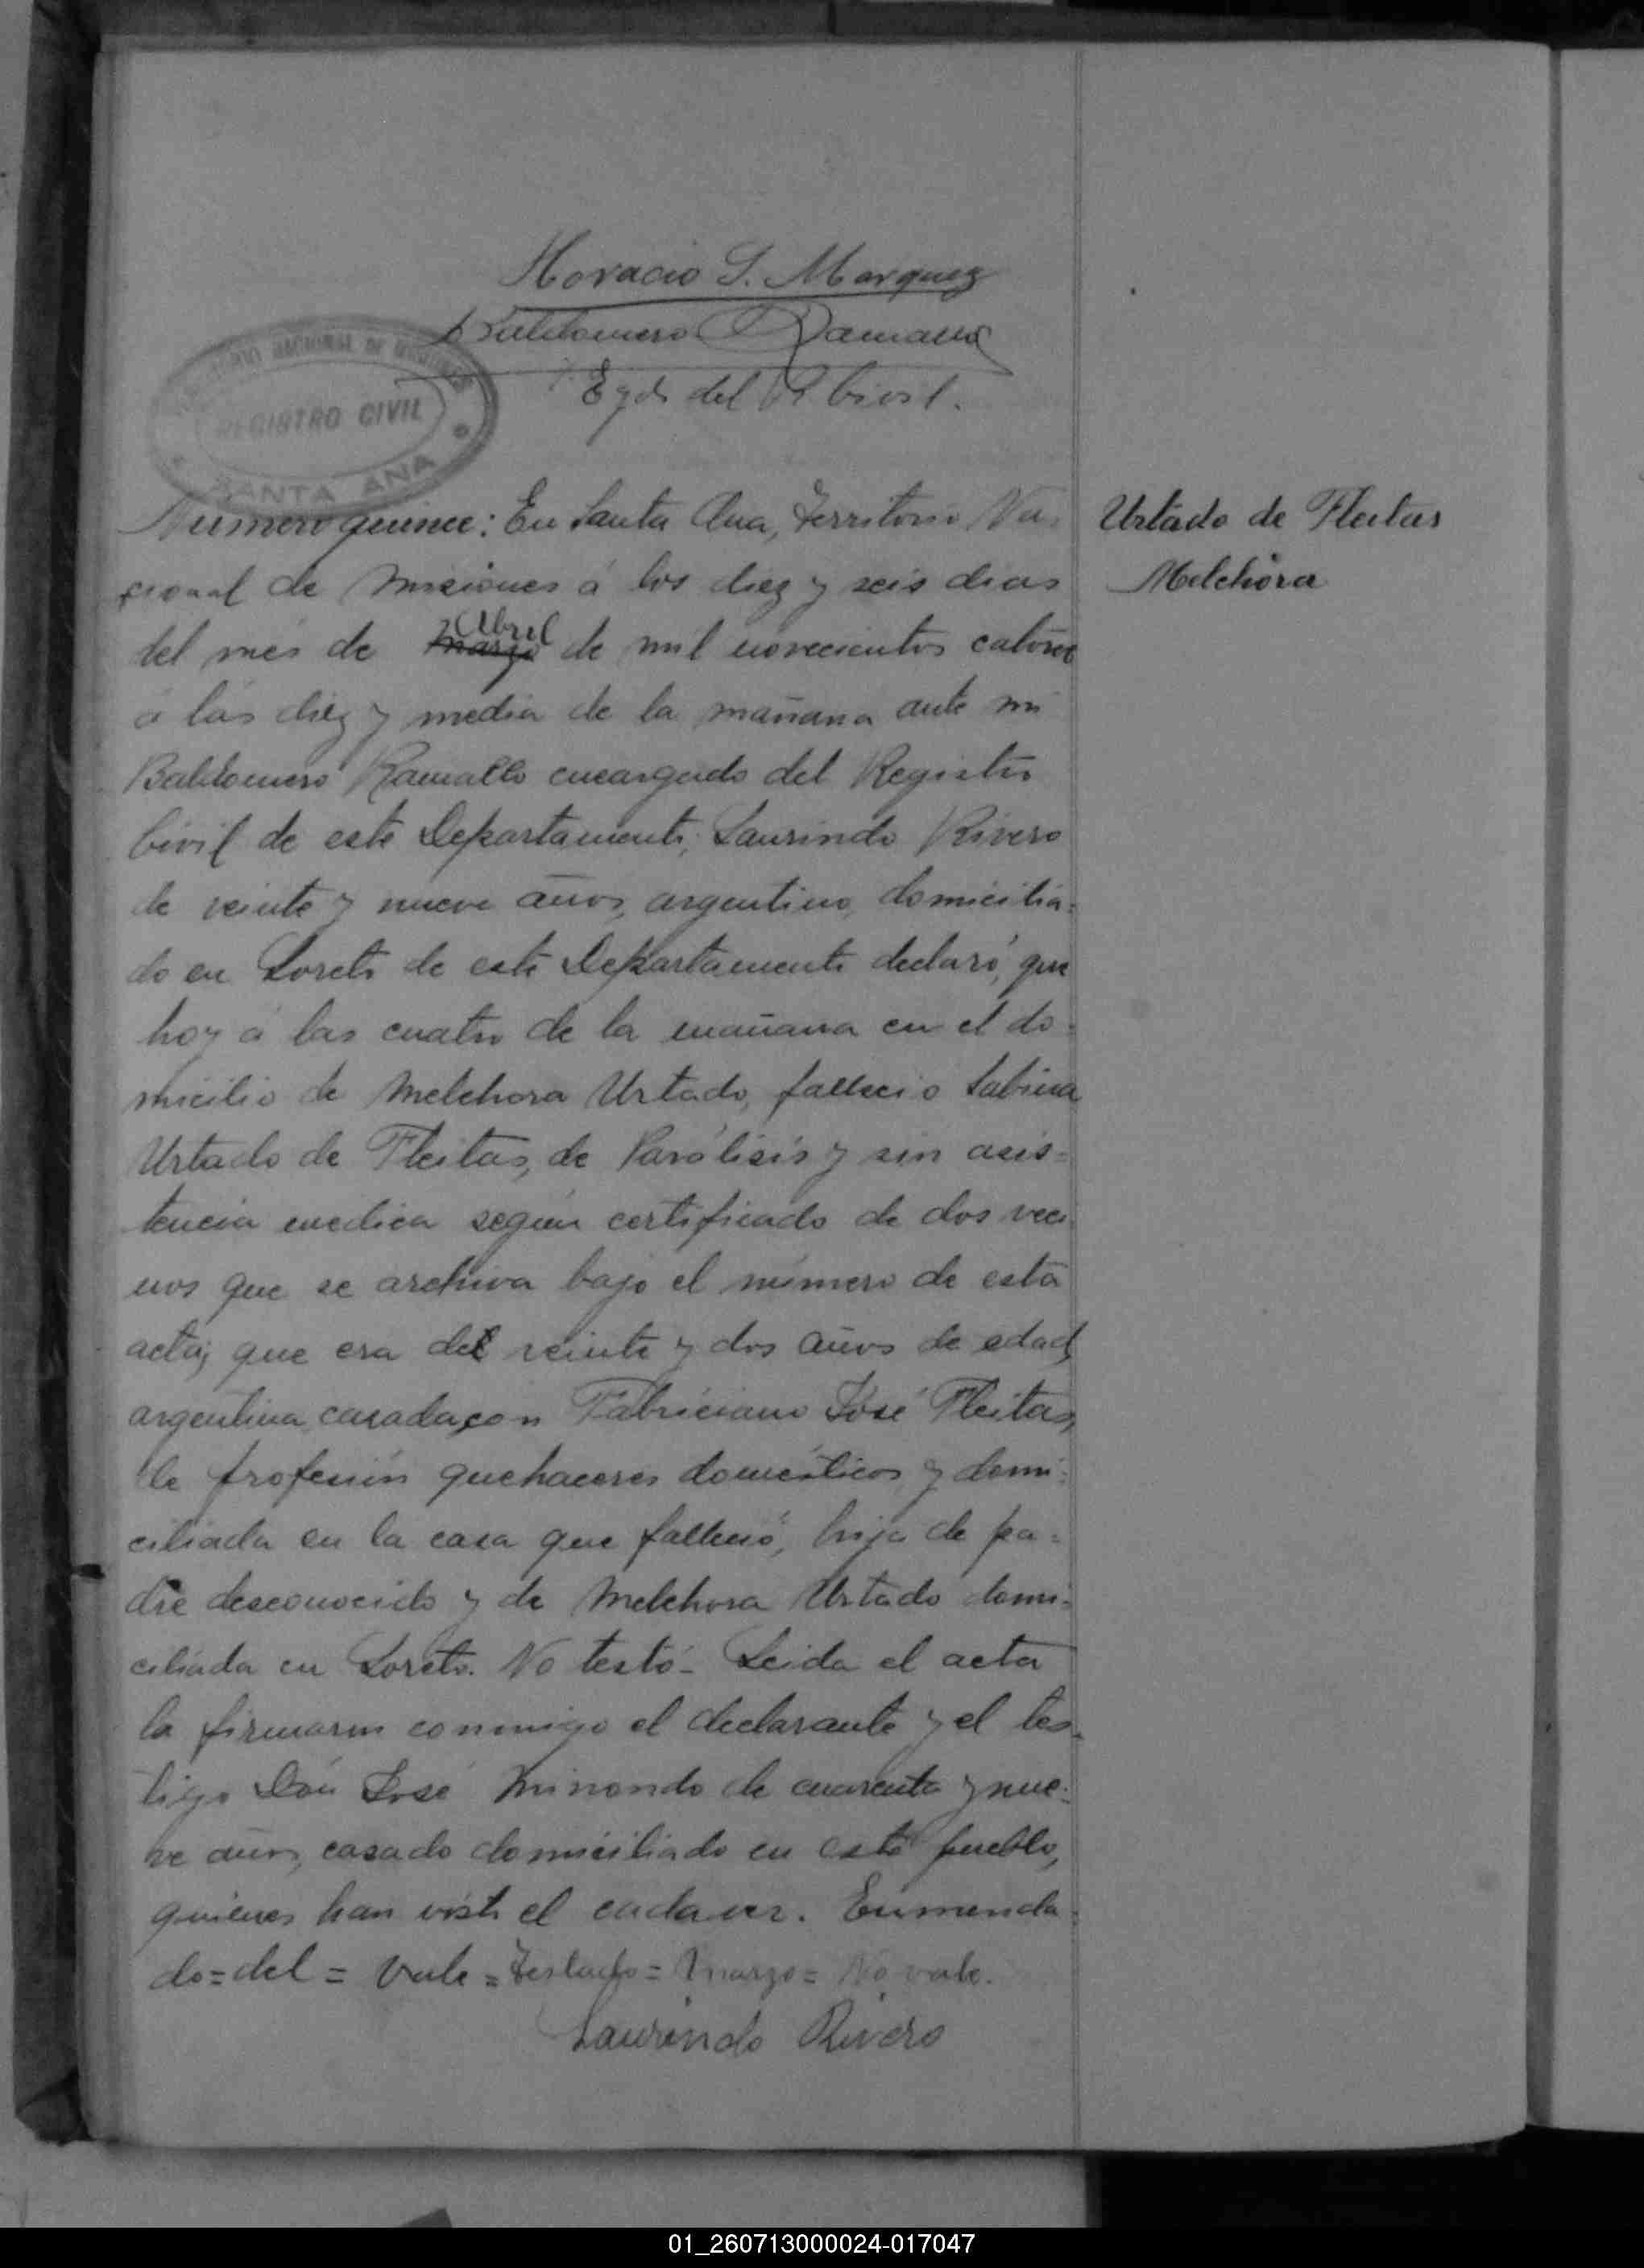 Horacio S. Marquez
Baldomero Ramallo
Egdo del R Civil.
TERRITORIO NACIONAL DE MISIONES
REGISTRO CIVIL
SANTA ANA
Numero quince: En Santa Ana, Territorio Na-
cional de Misiones á los diez y seis dias
Abril
del mes de Marzo de mil novecientos catorce
á las diez y media de la mañana ante mi
Baldomero Ramallo encargado del Registro
Civil de este Departamento, Laurindo Rivero
de veinte y nueve años, argentino, domicilia=
do en Loreto de este Departamento declaró, que
hoy á las cuatro de la mañana en el do=
micilio de Melchora Urtado, fallecio Sabina
Urtado de Fleitas, de Parálisis y sin asis=
tencia medica según certificado de dos veci
nos que se archiva bajo el número de esta
acta; que era del veinte y dos años de edad,
argentina, casada, con Fabriciano José Fleitas,
de profesión quehaceres domésticos y domi=
ciliada en la casa que falleció, hija de pa=
dre desconocido y de Melchora Urtado domi=
ciliada en Loreto. No testó- Leida el acta
la firmaron conmigo el declarante y el tes-
tigo Don José Minondo de cuarenta y nue=
ve años, casado domiciliado en este pueblo,
quienes han visto el cadaver. Enmenda=
do=del= Vale=Testado=Marzo=No vale.
Laurindo Rivero
Urtado de Fleitas
Melchora
01_260713000024-017047